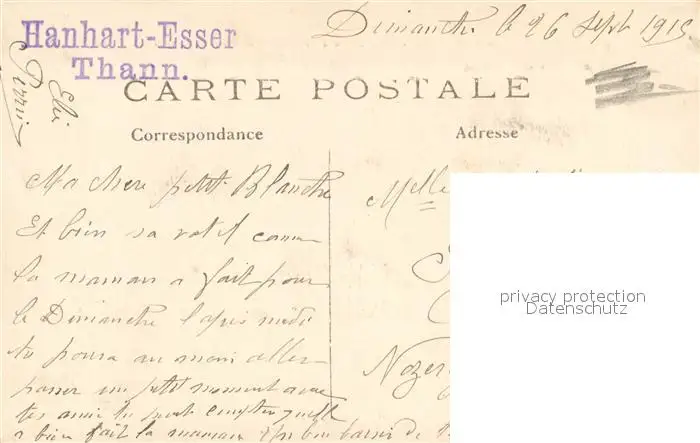 Hanhart-Esser
Thann.
Dimanche le 26 Sept 1915
Elie
CARTE POSTALE
Correspondance
Adresse
Ma chere petit Blanche
Et bien sa vat il comme
la maman a fait pour
le Dimanche l'apres midi
tu poura au moin aller
passer un petit moment avec
tes amie tu peut compter quelle
a bien fait la maman bon baiser de
Melle
Nozer
privacy protection
Datenschutz